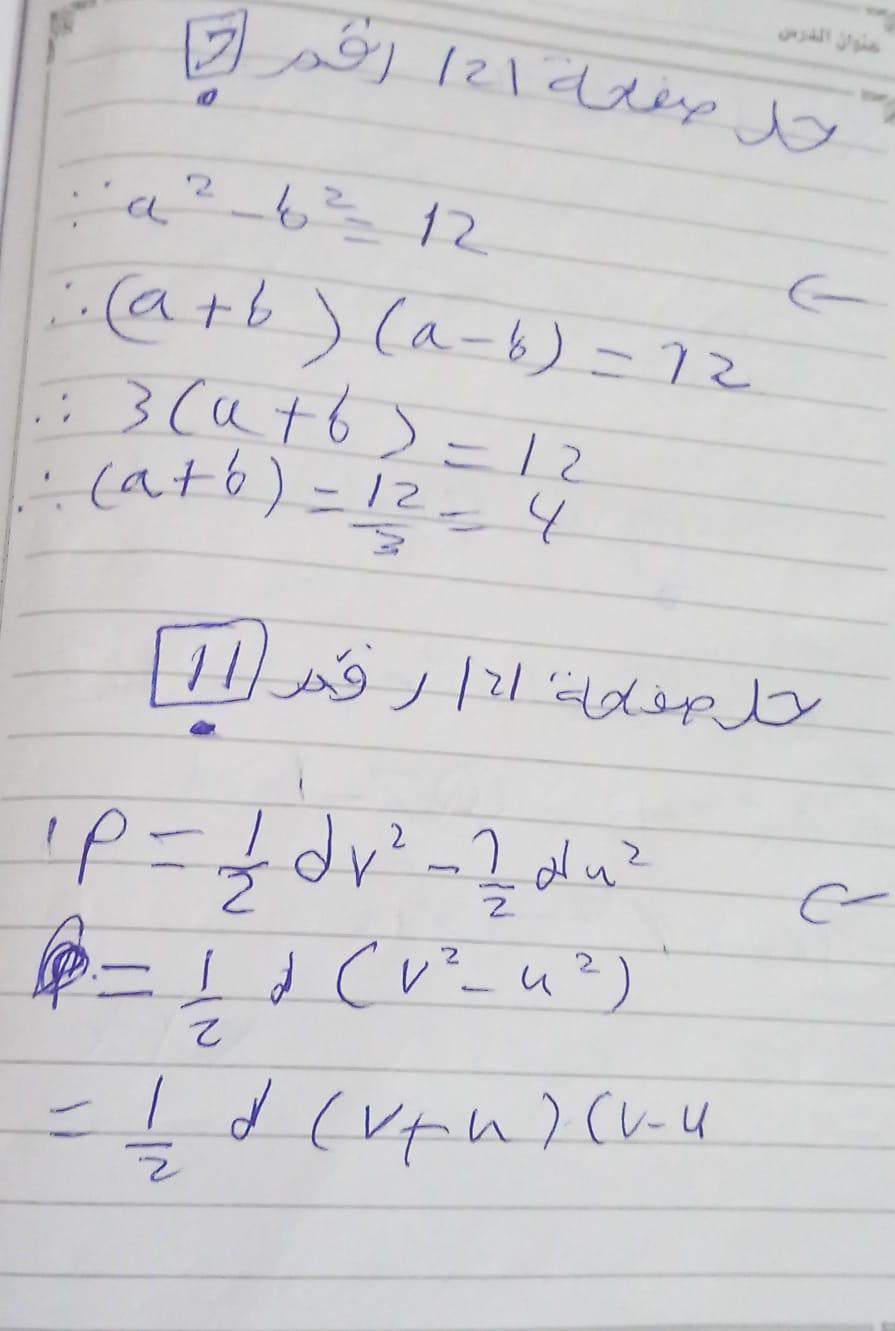 عنوان الدرس
حل صفحة 121 رقم 7
∵ a² - b² = 12
∴ (a + b) (a - b) = 12
∴ 3(a + b) = 12
∴ (a + b) = 12/3 = 4
حل صفحة 121 رقم 11
P = 1/2 dv² - 1/2 du²
= 1/2 d (v² - u²)
= 1/2 d (v + u) (v - u